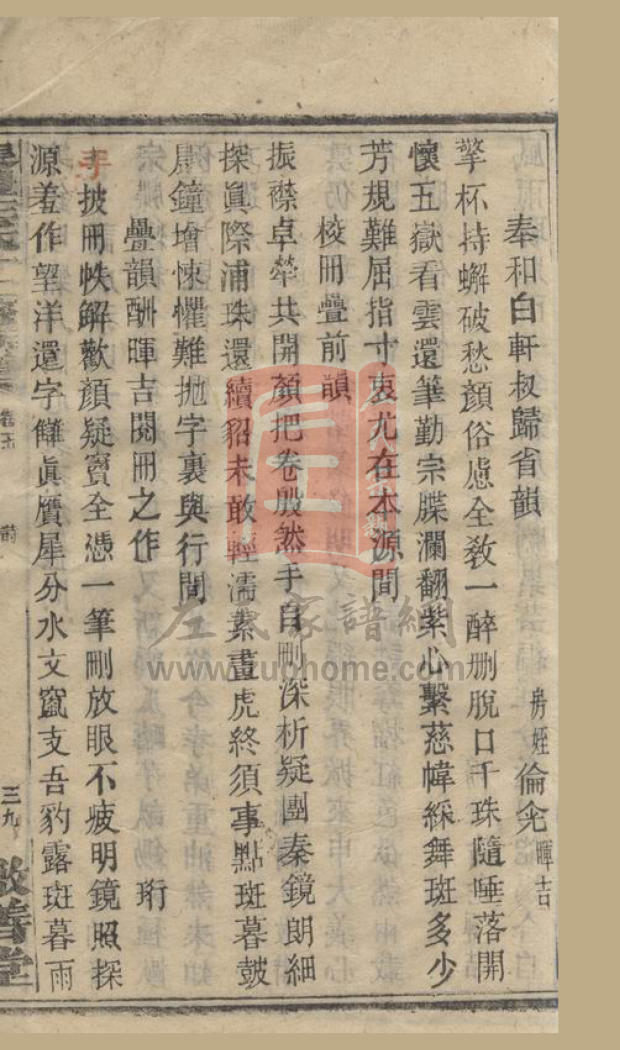 奉和白軒叔歸省韻 房姪倫兊暉吉
擎杯持蠏破愁顏俗慮全教一醉删脫口千珠隨唾落開
懷五嶽看雲還筆勤宗牒瀾翻紫心繫慈幃綵舞斑多少
芳規難屈指寸衷尤在本源間
校冊疊前韻
振襟卓犖共開顏把卷殷然手自刪深析疑團秦鏡朗細
探眞際浦珠還續貂未敢輕濡素畫虎終須事點斑暮皷
晨鐘增悚懼難拋字裏與行間
疊韻酬暉吉閱冊之作 珩
手披冊帙解歡顏疑竇全憑一筆刪放眼不疲明鏡照探
源羞作望洋還字讎眞贋犀分水文竄支吾豹露斑暮雨
卷五
三九
敬善堂
左氏家譜網
www.zuohome.com